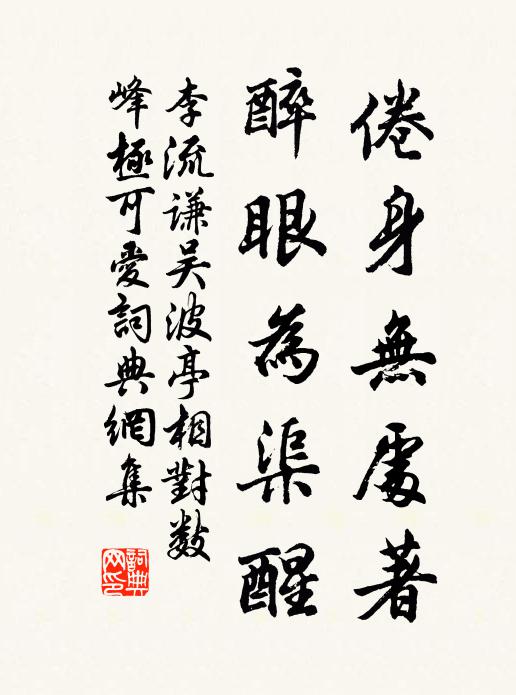 倦身無處著
醉眼為渠醒
李流謙吳波亭相對數
峰極可愛詞典網集
詞典網印